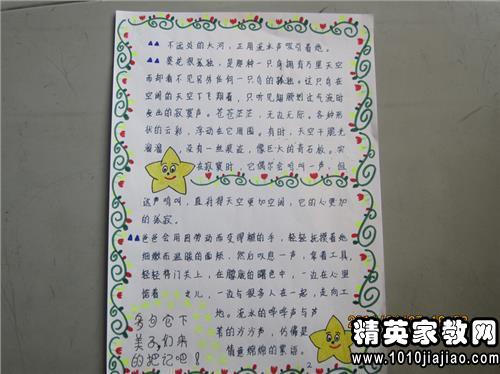 不远处的大河,正用流水声吸引着她。
葵花很孤独。是那种一只鸟拥有万里天空
而却看不见另外任何一只鸟的孤独。这只鸟在
空阔的天空下飞翔着,只听见翅膀划过气流时
发出的寂寞声。苍苍茫茫,无边无际。各种形
状的云彩,浮动在它周围。有时,天空干脆光
溜溜,没有一丝痕迹,像巨大的青石板。实
在寂寞时,它偶尔会鸣叫一声,但
这声鸣叫,直将得天空更加空阔,它的心更加
的孤寂。
爸爸会用因劳动而变得的手,轻轻抚摸着她
细嫩而温暖的面颊,然后叹息一声,拿着工具,
轻轻将门关上,在朦胧的曙色中,一边在心里
惦着女儿,一边与很多人在一起,走向工
地。流水的哗哗声与芦
苇的沙沙声,仿佛是
情意绵绵的絮语。
多句它下
美子们来
的把记吧!
2
精英家教网
www.1010jiajiao.com